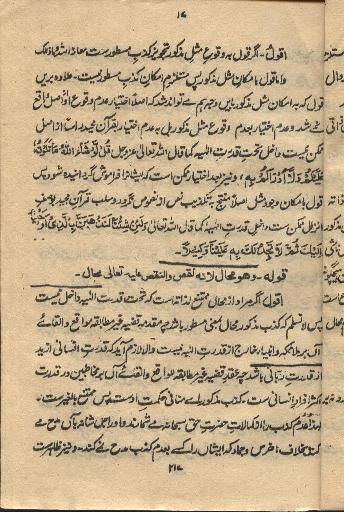 ۱۷
اقول۔ اگر قول بہ وقوع مثل مذکور تجویز کذب مسطور ست معاذ اللہ من ذلک
واما قول بامکان مثل مذکور پس مستلزم امکان کذب مسطور نیست۔ علاوہ بریں
قول کہ بہ امکان مثل مذکور بایں وجہ ہم مے تواند شد کہ اصلا اختیار عدم وقوع او از اصل واقع
شدہ و عدم اختیار بعدم وقوع مثل مذکور بل بہ عدم اختیار بقرآن مجید راسا از اصل
ممکن نیست و داخل تحت قدرت الٰہیہ کما قال اللہ تعالیٰ عز وجل قُلْ لَّوْ شَاءَ اللّٰهُ مَا تَلَوْتُهٗ
عَلَيْكُمْ وَلَا أَدْرَاكُمْ بِهٖ و نیز بعد اختیار ممکن ست کہ ایشاں را فراموش گردانیدہ شود پس
قول بامکان وجود مثل اصلا منجر بہ تکذیب نصے از نصوص نگردد و سلب قرآن مجید بعد
انزال ممکن ست داخل قدرت الٰہیہ کما قال اللہ تعالیٰ وَلَئِنْ شِئْنَا لَنَذْهَبَنَّ بِالَّذِي أَوْحَيْنَا
إِلَيْكَ ثُمَّ لَا تَجِدُ لَكَ بِهٖ عَلَيْنَا وَكِيلًا۔
قولہ۔ وهو محال لانه نقص والنقص علیہ تعالیٰ محال۔
اقول اگر مراد از محال ممتنع لذاتہ است کہ تحت قدرت الٰہیہ داخل نیست
پس لا نسلم کہ کذب مذکور محال بمعنی مسطور باشد چہ مقدمہ قضیہ غیر مطابقہ للواقع و القائے
آں بر ملائکہ و انبیاء خارج از قدرت الٰہیہ نیست والا لازم آید کہ قدرت انسانی ازید
از قدرت ربانی باشد چہ عقد قضیہ غیر مطابقہ للواقع و القائے آں بر مخاطبین در قدرت
اکثر افراد انسانی ست۔ کذب مذکور بلے منافی حکمت اوست پس ممتنع بالغیر ست۔
ولہذا عدم کذب را از کمالات حضرت حق سبحانہ مے شمارند و او را جل شانہ باں مدح مے
کنند بخلاف اخرس و جماد کہ ایشاں را کسے بعدم کذب مدح نمے کند۔ و نیز ظاہر ست